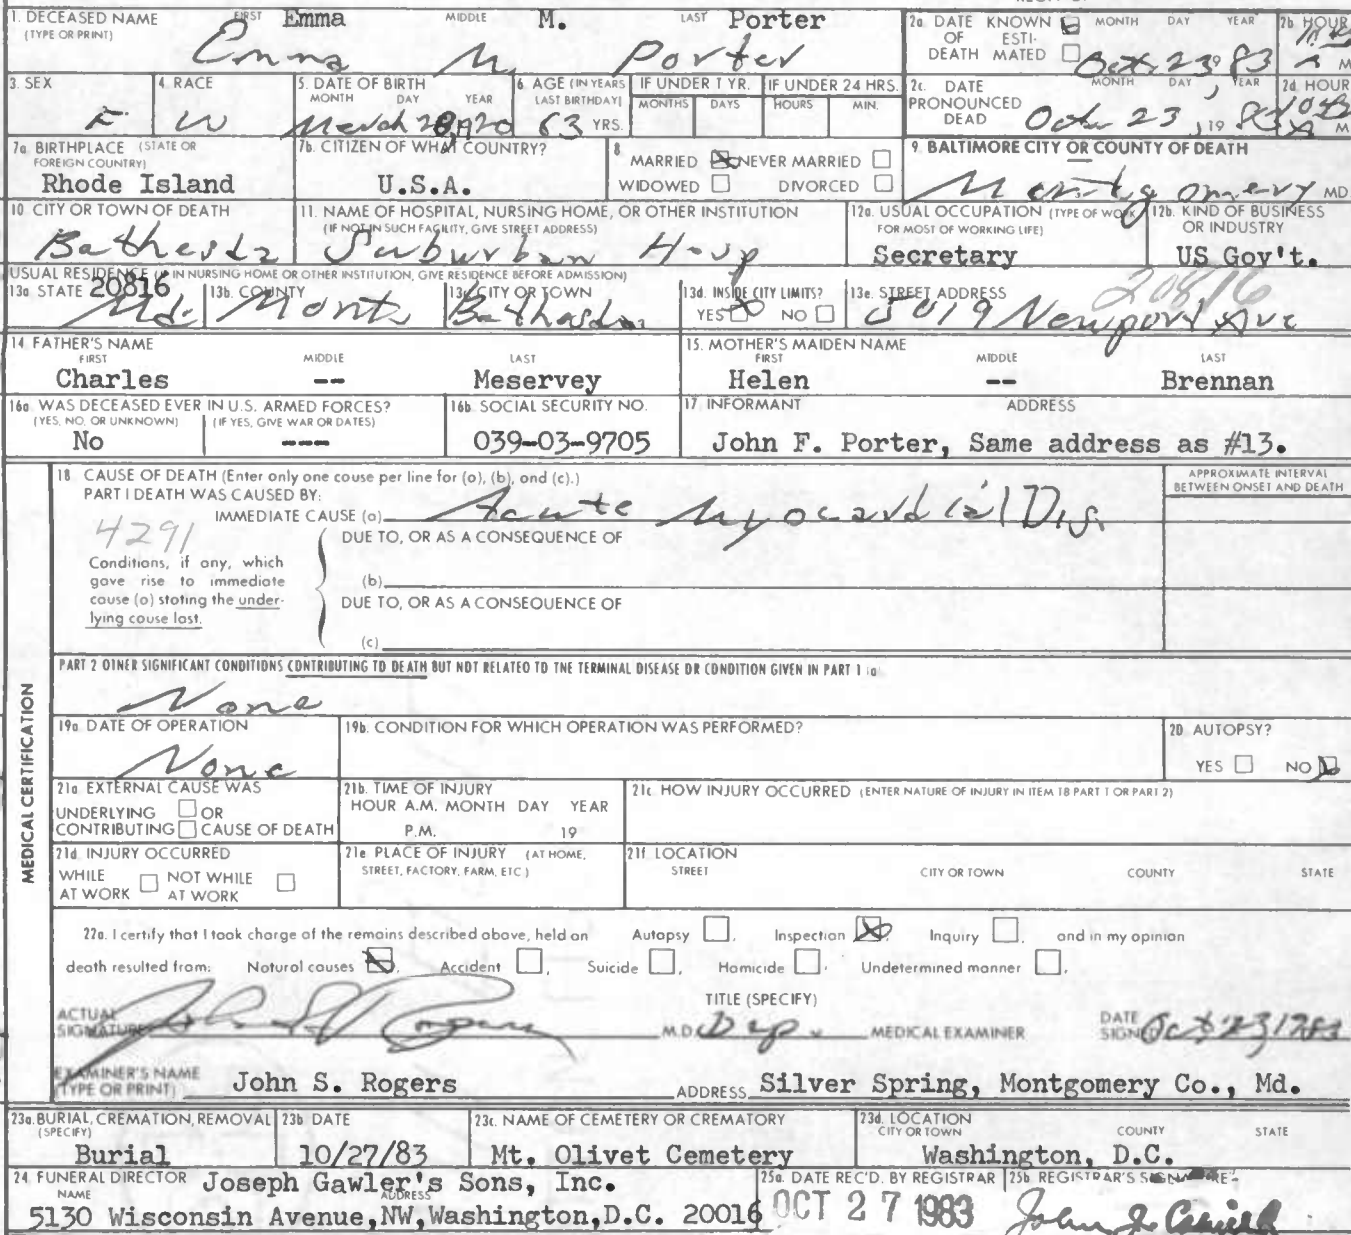 1. DECEASED NAME (TYPE OR PRINT) FIRST Emma MIDDLE M. LAST Porter
Emma M. Porter
2a. DATE OF DEATH KNOWN ESTIMATED MONTH DAY YEAR Oct 23 83 2b. HOUR M
3. SEX F 4. RACE W 5. DATE OF BIRTH MONTH DAY YEAR March 28, 1920 6. AGE (IN YEARS LAST BIRTHDAY) 63 YRS. IF UNDER 1 YR. MONTHS DAYS IF UNDER 24 HRS. HOURS MIN.
2c. DATE PRONOUNCED DEAD MONTH DAY YEAR Octo 23, 19 83 2d. HOUR M
7a. BIRTHPLACE (STATE OR FOREIGN COUNTRY) Rhode Island 7b. CITIZEN OF WHAT COUNTRY? U.S.A. 8. MARRIED NEVER MARRIED WIDOWED DIVORCED 9. BALTIMORE CITY OR COUNTY OF DEATH Montgomery MD
10. CITY OR TOWN OF DEATH Bathesda 11. NAME OF HOSPITAL, NURSING HOME, OR OTHER INSTITUTION (IF NOT IN SUCH FACILITY, GIVE STREET ADDRESS) Suburban Hosp 12a. USUAL OCCUPATION (TYPE OF WORK FOR MOST OF WORKING LIFE) Secretary 12b. KIND OF BUSINESS OR INDUSTRY US Gov't.
USUAL RESIDENCE (IF IN NURSING HOME OR OTHER INSTITUTION, GIVE RESIDENCE BEFORE ADMISSION)
13a. STATE 20816 Md. 13b. COUNTY Mont. 13c. CITY OR TOWN Bathesda 13d. INSIDE CITY LIMITS? YES NO 13e. STREET ADDRESS 20816 5019 Newport Ave
14. FATHER'S NAME FIRST MIDDLE LAST Charles -- Meservey 15. MOTHER'S MAIDEN NAME FIRST MIDDLE LAST Helen -- Brennan
16a. WAS DECEASED EVER IN U.S. ARMED FORCES? (YES, NO, OR UNKNOWN) (IF YES, GIVE WAR OR DATES) No --- 16b. SOCIAL SECURITY NO. 039-03-9705 17. INFORMANT ADDRESS John F. Porter, Same address as #13.
18. CAUSE OF DEATH (Enter only one cause per line for (a), (b), and (c).)
APPROXIMATE INTERVAL BETWEEN ONSET AND DEATH
PART I DEATH WAS CAUSED BY:
IMMEDIATE CAUSE (a) Acute Myocardial Dis.
4291
DUE TO, OR AS A CONSEQUENCE OF
Conditions, if any, which gave rise to immediate cause (a) stating the underlying cause last.
(b)
DUE TO, OR AS A CONSEQUENCE OF
(c)
PART 2 OTHER SIGNIFICANT CONDITIONS CONTRIBUTING TO DEATH BUT NOT RELATED TO THE TERMINAL DISEASE OR CONDITION GIVEN IN PART 1 (a)
None
MEDICAL CERTIFICATION
19a. DATE OF OPERATION None 19b. CONDITION FOR WHICH OPERATION WAS PERFORMED? 20. AUTOPSY? YES NO
21a. EXTERNAL CAUSE WAS UNDERLYING OR CONTRIBUTING CAUSE OF DEATH 21b. TIME OF INJURY HOUR A.M. MONTH DAY YEAR P.M. 19 21c. HOW INJURY OCCURRED (ENTER NATURE OF INJURY IN ITEM 18 PART 1 OR PART 2)
21d. INJURY OCCURRED WHILE AT WORK NOT WHILE AT WORK 21e. PLACE OF INJURY (AT HOME, STREET, FACTORY, FARM, ETC.) 21f. LOCATION STREET CITY OR TOWN COUNTY STATE
22a. I certify that I took charge of the remains described above, held an Autopsy, Inspection, Inquiry, and in my opinion
death resulted from: Natural causes, Accident, Suicide, Homicide, Undetermined manner,
ACTUAL SIGNATURE John S Rogers M.D. TITLE (SPECIFY) Dep. MEDICAL EXAMINER DATE SIGNED Oct 23 1983
EXAMINER'S NAME (TYPE OR PRINT) John S. Rogers ADDRESS Silver Spring, Montgomery Co., Md.
23a. BURIAL, CREMATION, REMOVAL (SPECIFY) Burial 23b. DATE 10/27/83 23c. NAME OF CEMETERY OR CREMATORY Mt. Olivet Cemetery 23d. LOCATION CITY OR TOWN COUNTY STATE Washington, D.C.
24. FUNERAL DIRECTOR NAME Joseph Gawler's Sons, Inc. 25a. DATE REC'D. BY REGISTRAR OCT 27 1983 25b. REGISTRAR'S SIGNATURE John J.
ADDRESS 5130 Wisconsin Avenue, NW, Washington, D.C. 20016